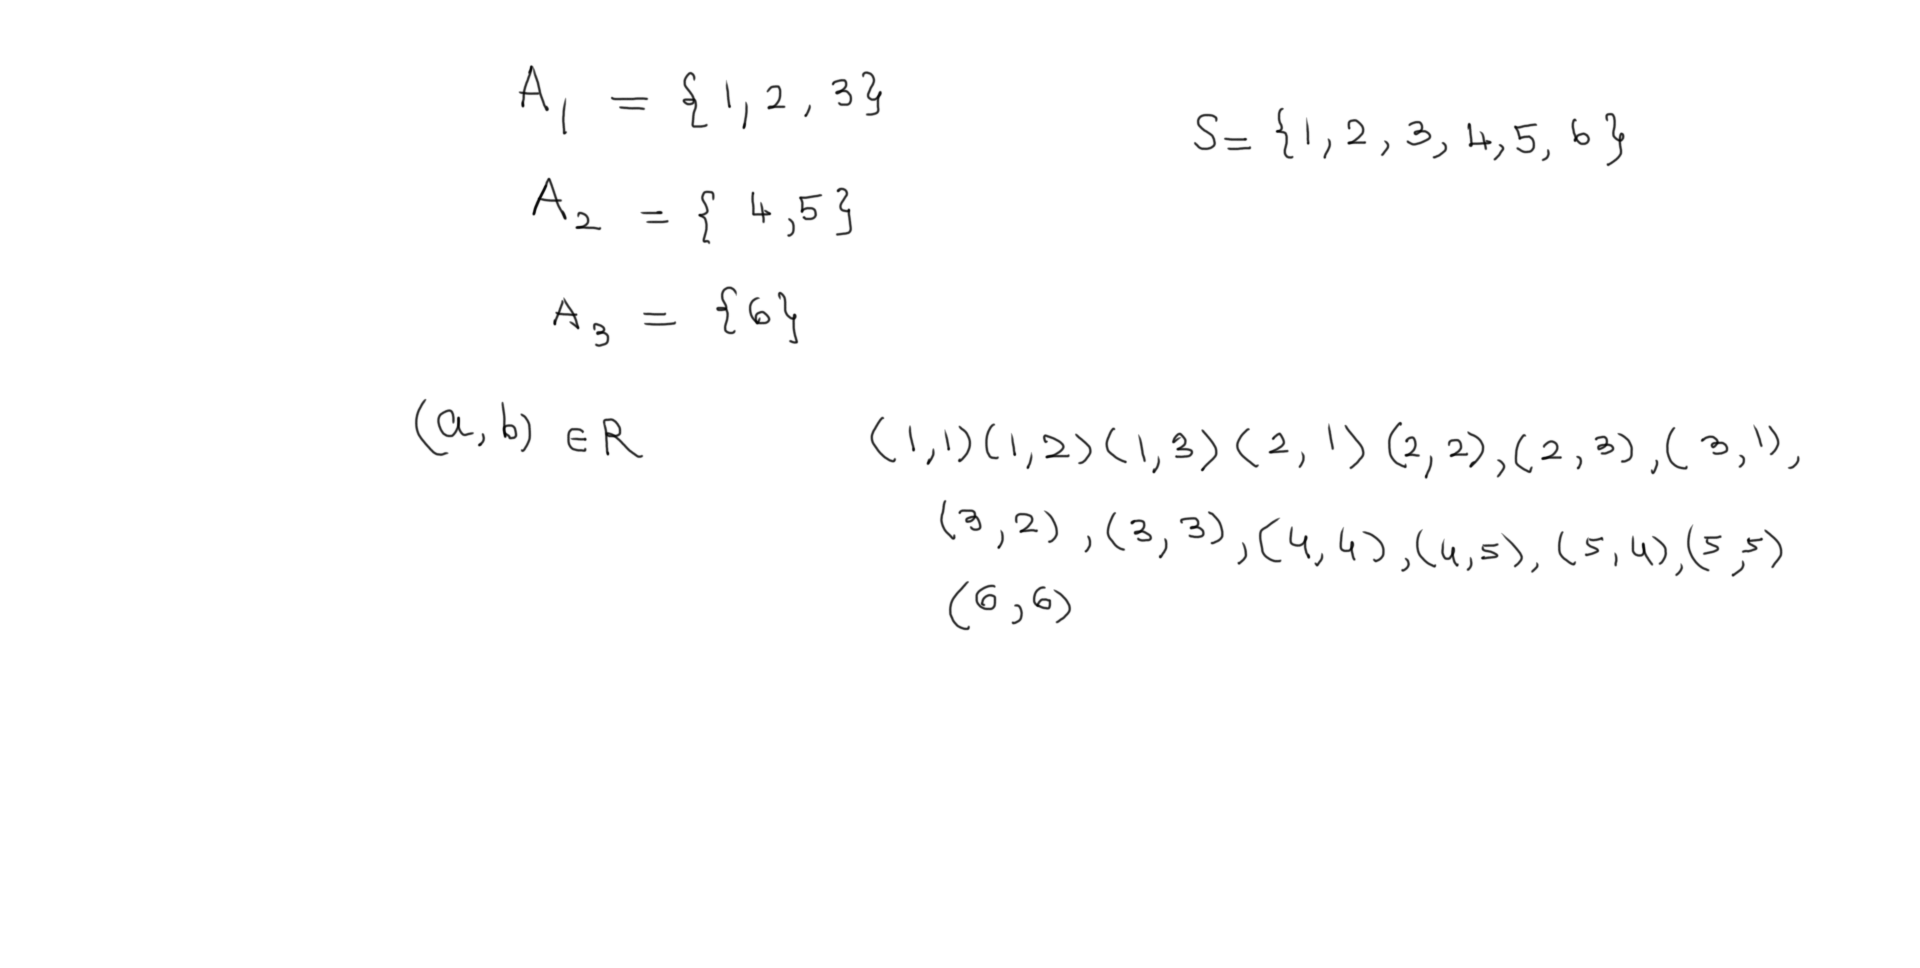 A₁ = {1, 2, 3}
S = {1, 2, 3, 4, 5, 6}
A₂ = { 4, 5}
A₃ = {6}
(a, b) ∈ R (1,1) (1,2) (1,3) (2, 1) (2, 2), (2, 3), (3, 1),
(3, 2), (3, 3), (4, 4), (4, 5), (5, 4), (5, 5)
(6, 6)